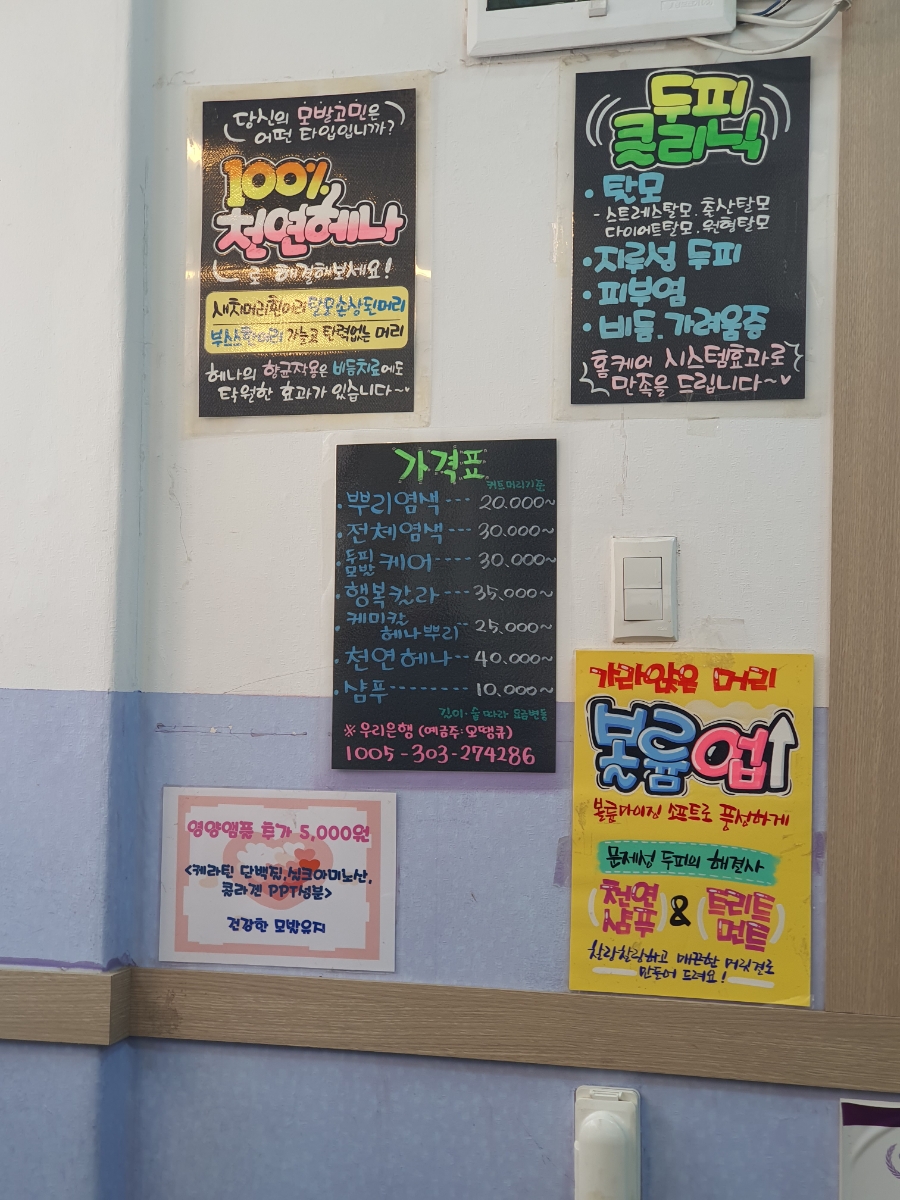 당신의 모발고민은
어떤 타입입니까?
100%
천연헤나
로 해결해보세요!
새치머리흰머리 탈모손상된머리
부스스한머리 가늘고 탄력없는 머리
헤나의 항균작용은 비듬치료에도
탁월한 효과가 있습니다~
두피
클리닉
• 탈모
- 스트레스탈모. 출산탈모
다이어트탈모. 원형탈모
• 지루성 두피
• 피부염
• 비듬. 가려움증
홈케어 시스템효과로
만족을 드립니다~
가격표
커트머리기준
• 뿌리염색 --- 20.000~
• 전체염색 --- 30.000~
• 두피모발 케어 ---- 30.000~
• 행복칼라 --- 35.000~
• 케미칼
헤나뿌리 -- 25.000~
• 천연헤나 -- 40.000~
• 샴푸 -------- 10.000~
길이·숱 따라 요금변동
※ 우리은행 (예금주: 모땡큐)
1005-303-274286
가라앉은 머리
볼륨업
볼륨마이징 소프트로 풍성하게
문제성 두피의 해결사
천연샴푸 & 트리트먼트
찰랑찰랑하고 매끈한 머릿결로
만들어 드려요!
영양앰플 추가 5,000원
<케라틴 단백질,씽크아미노산,
콜라겐 PPT성분>
건강한 모발유지